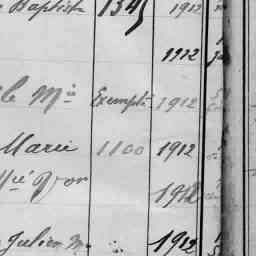 Baptiste 1345 1912
1912
Mie Exempté 1912
Marie 1100 1912
d'or 1912
Julien M. 1912